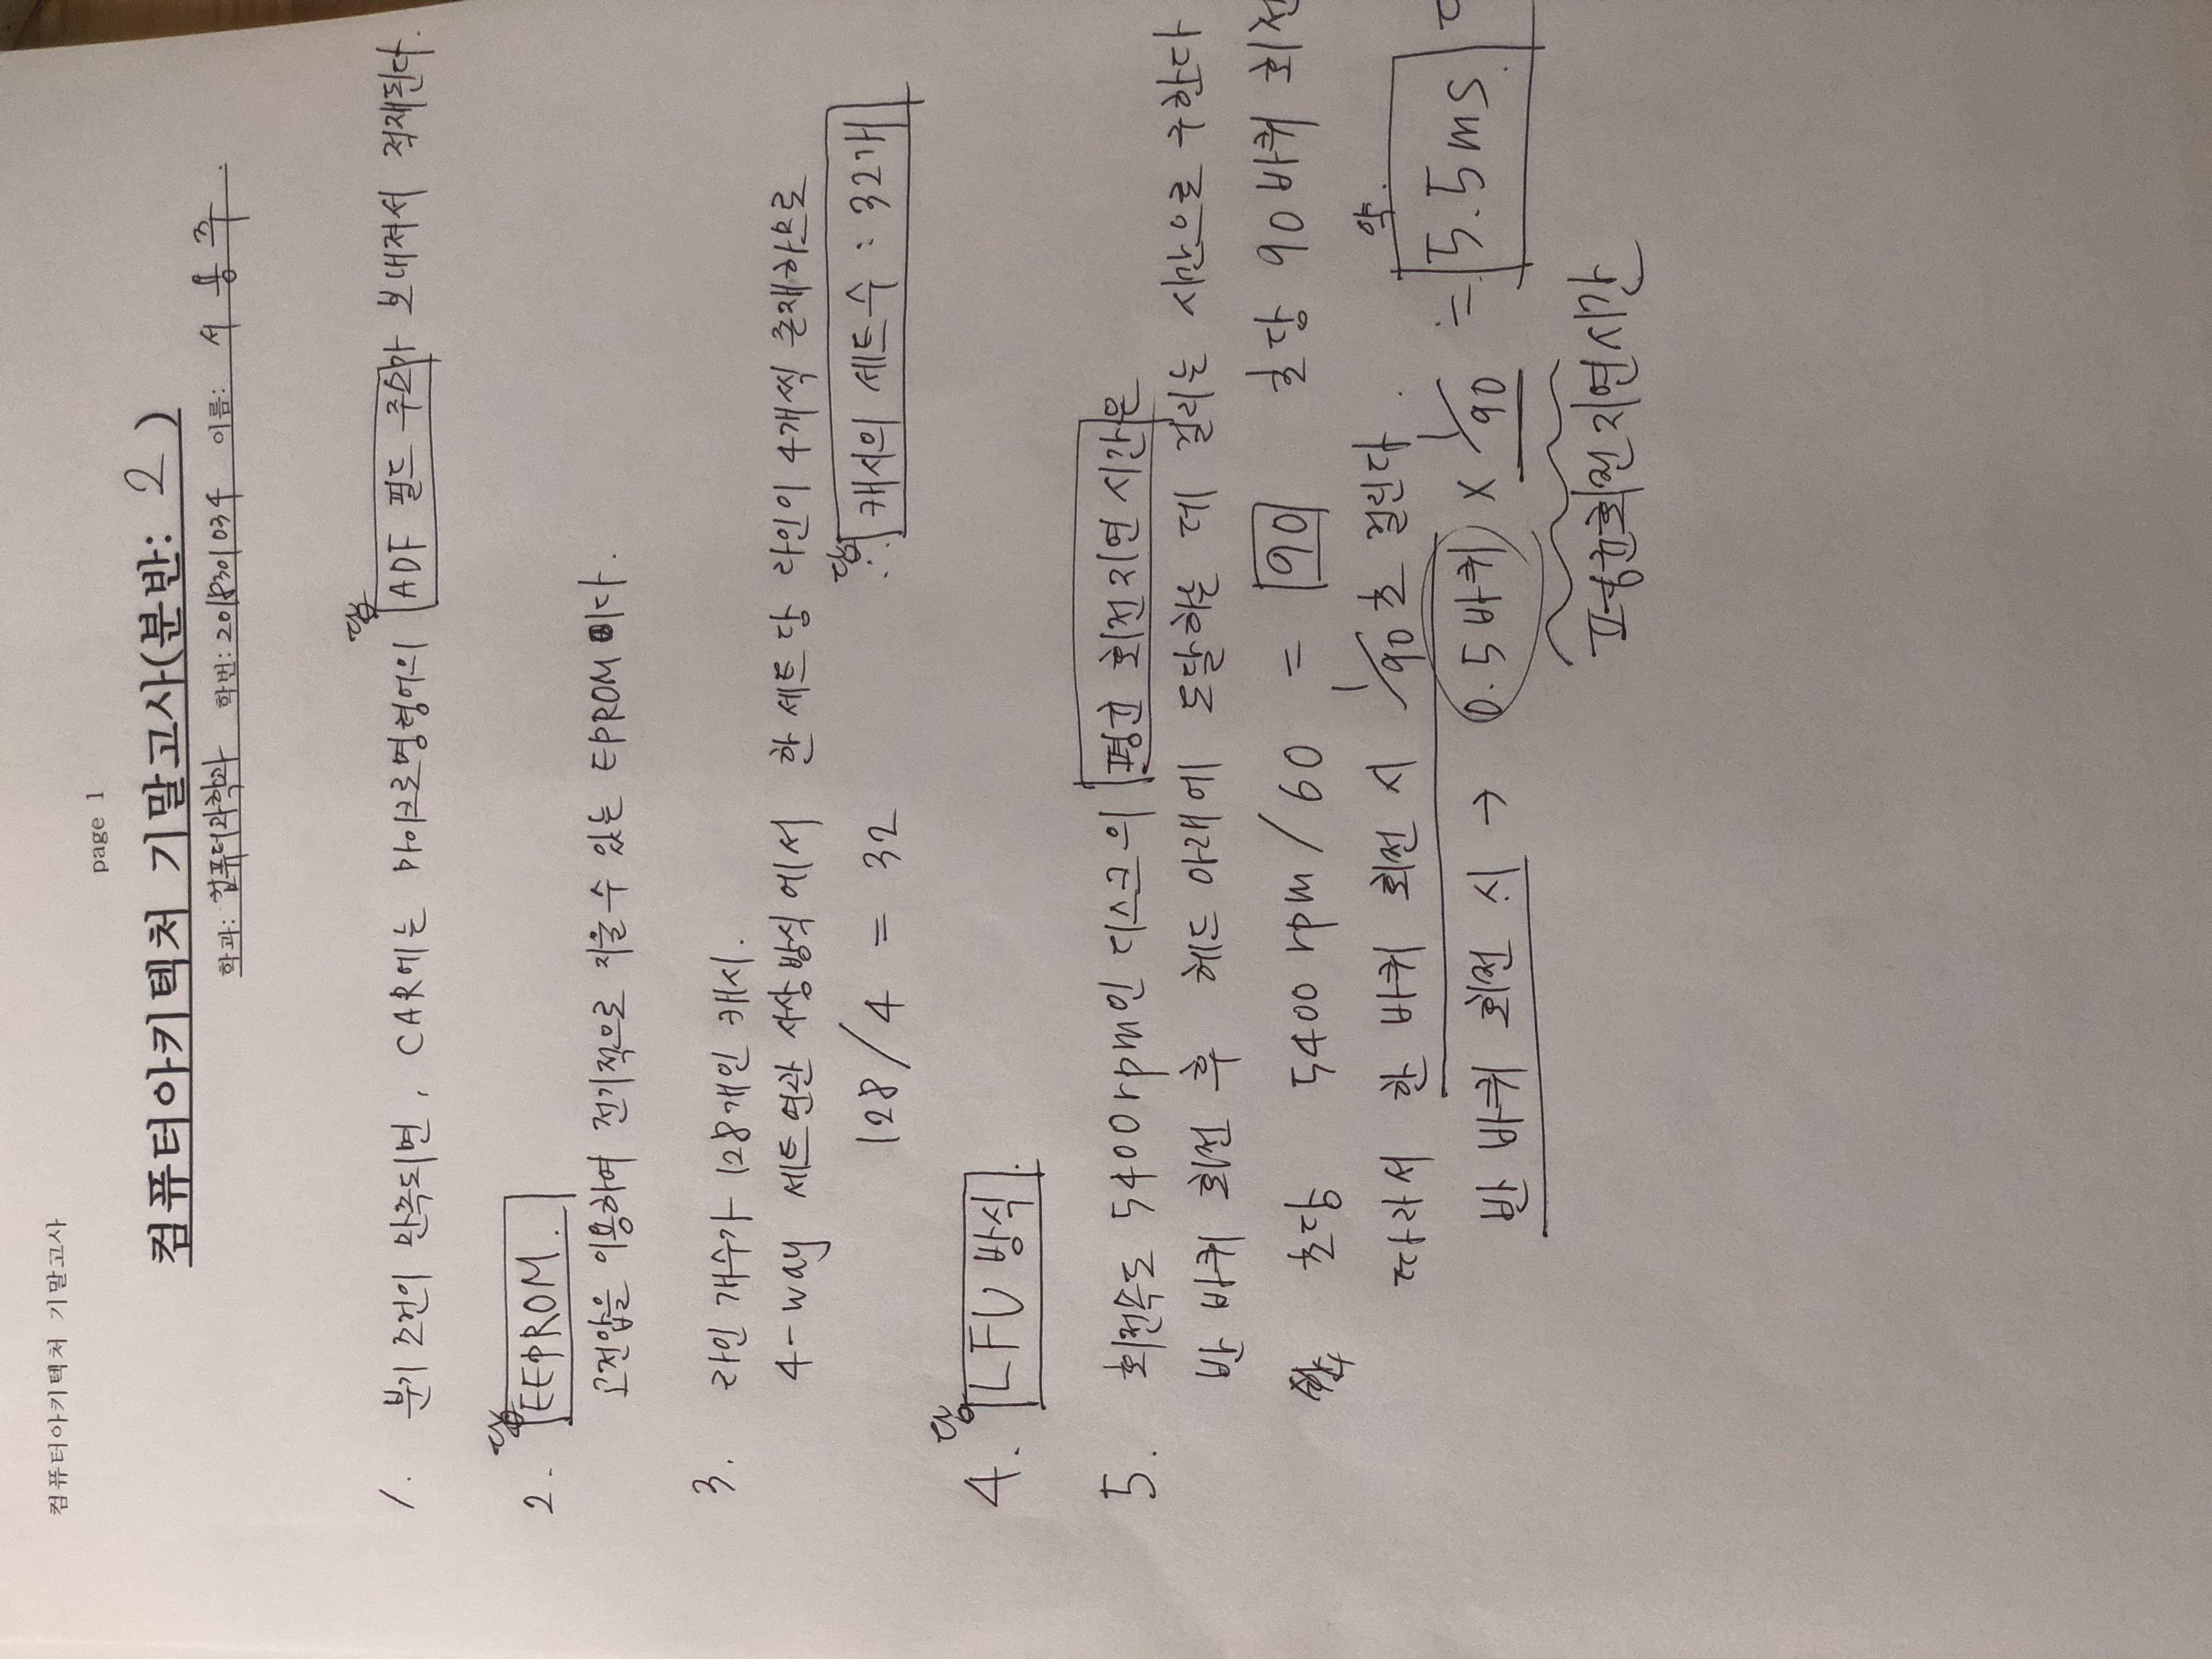 컴퓨터아키텍처 기말고사
page 1
컴퓨터아키텍처 기말고사(분반: 2 )
학과: 컴퓨터과학과 학번: 2018301034 이름: 서 용 주 .
답
1. 분기 조건이 만족되면, CAR에는 마이크로명령어의 ADF 필드 주소가 보내져서 적재된다.
답
2. EEPROM.
고전압을 이용하여 전기적으로 지울 수 있는 EPROM 이다.
3. 라인 개수가 128개인 캐시.
4-way 세트 연관 사상 방식에서 한 세트 당 라인이 4개씩 존재하므로
답
128/4 = 32 ∴ 캐시의 세트 수 : 32개
답
4. LFU 방식.
5. 회전속도 5400rpm인 디스크의 평균 회전지연 시간은
반 바퀴 회전 후 헤드 아래에 도달하는 데 걸리는 시간으로 구한다
초당 5400 rpm/60 = 90 초당 90바퀴 회전
따라서 한 바퀴 회전 시 1/90초 걸린다.
약.
반 바퀴 회전 시 → 0.5바퀴 × 1/90 ≒ 5.5ms
평균회전지연시간